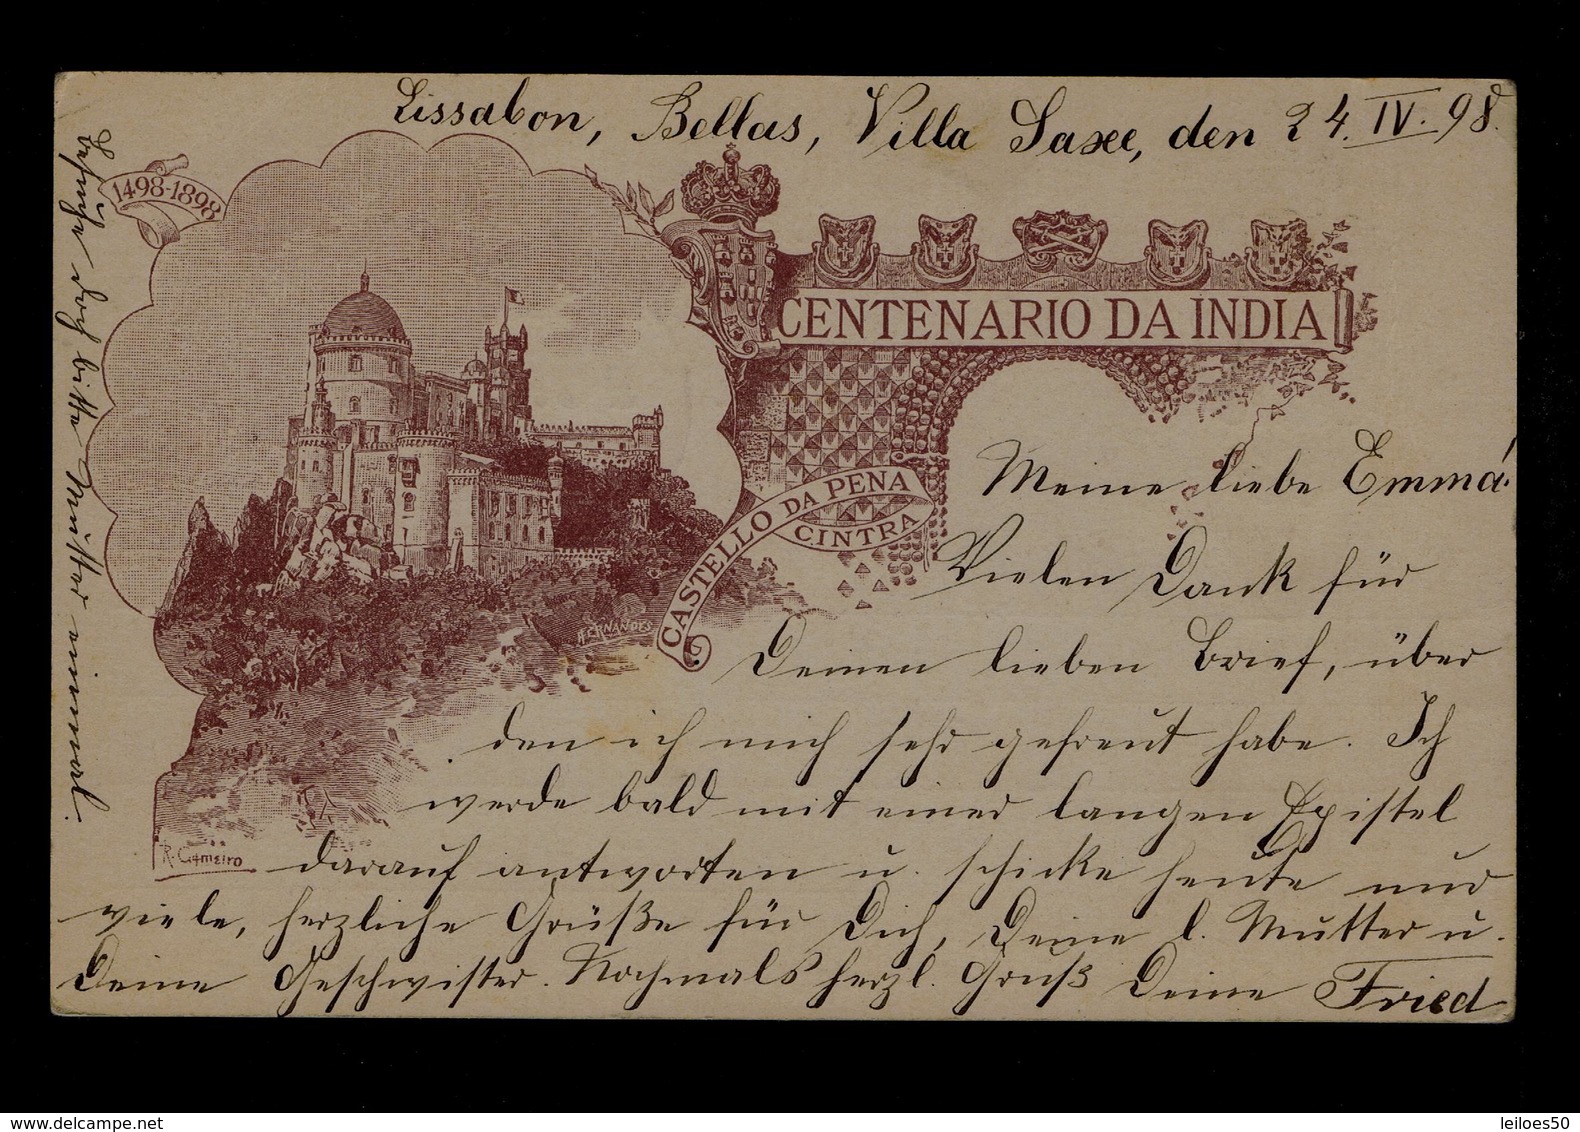 Lissabon, Bellas, Villa Saxe, den 24. IV. 98.
1498-1898
CENTENARIO DA INDIA
CASTELLO DA PENA
CINTRA
FERNANDES
Meine liebe Emma.
Vielen Dank für
Deinen lieben Brief, über
den ich mich sehr gefreut habe. Ich
werde bald mit einer langen Epistel
darauf antworten u. schicke heute nur
viele, herzliche Grüße für Dich, Deine l. Mutter u.
Deine Geschwister. Nochmals herzl. Gruß Deine Fried
bitte Mutter einmal.
leiloes50